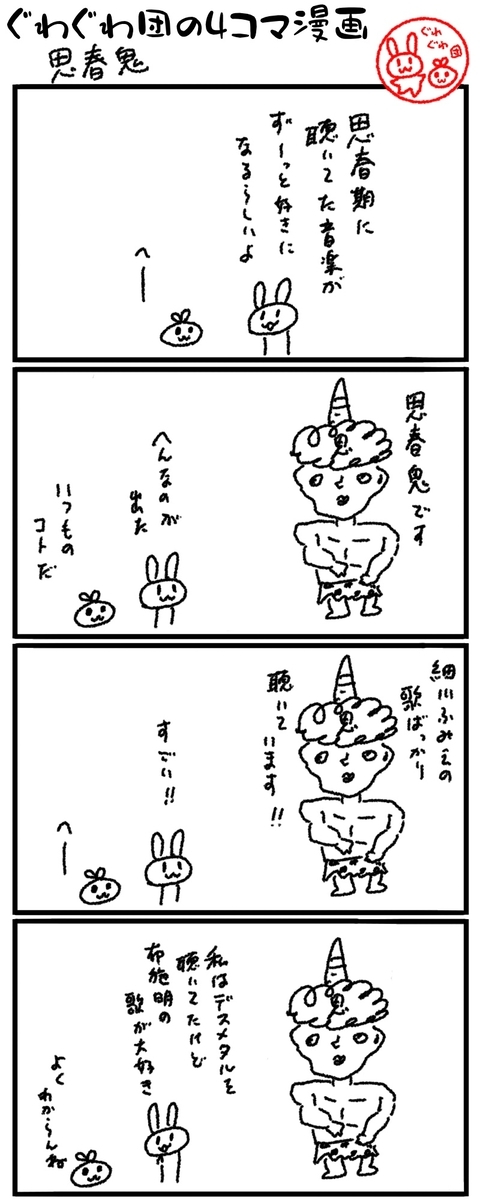 ぐわぐわ団の4コマ漫画
思春鬼
ぐわ
ぐわ
団
思春期に
聴いてた音楽が
ずーっと好きに
なるらしいよ
へー
思春鬼です
思
へんなのが
出た
いつもの
コトだ
細川ふみえの
歌ばっかり
聴いて
います!!
思
すごい!!
へー
思
私はデスメタルを
聴いてたけど
布施明の
歌が大好き
よく
わからんね